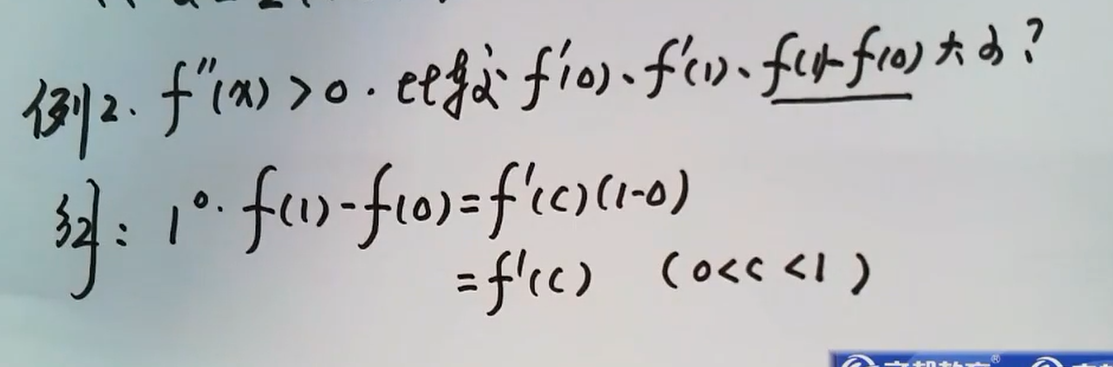 例2. f''(x)>0. 比较 f'(0)、f'(1)、f(1)-f(0)大小?
解: 1°. f(1)-f(0)=f'(c)(1-0)
=f'(c) (0<c<1)